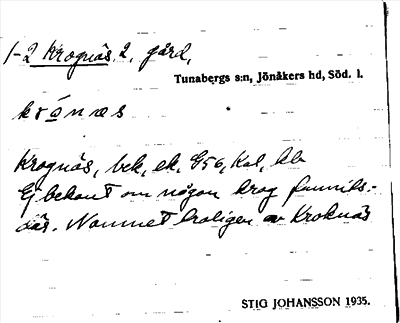 1-2 Krognäs, 2, gård,
Tunabergs s:n, Jönåkers hd, Söd. l.
krónæs
Krognäs, bek, ek, G56, Kal, bb
Ej bekant om någon krog funnits
där. Namnet troligen av Kroknäs
STIG JOHANSSON 1935.